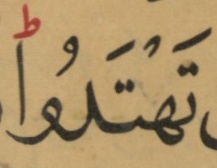 تَهْتَدُواؕ